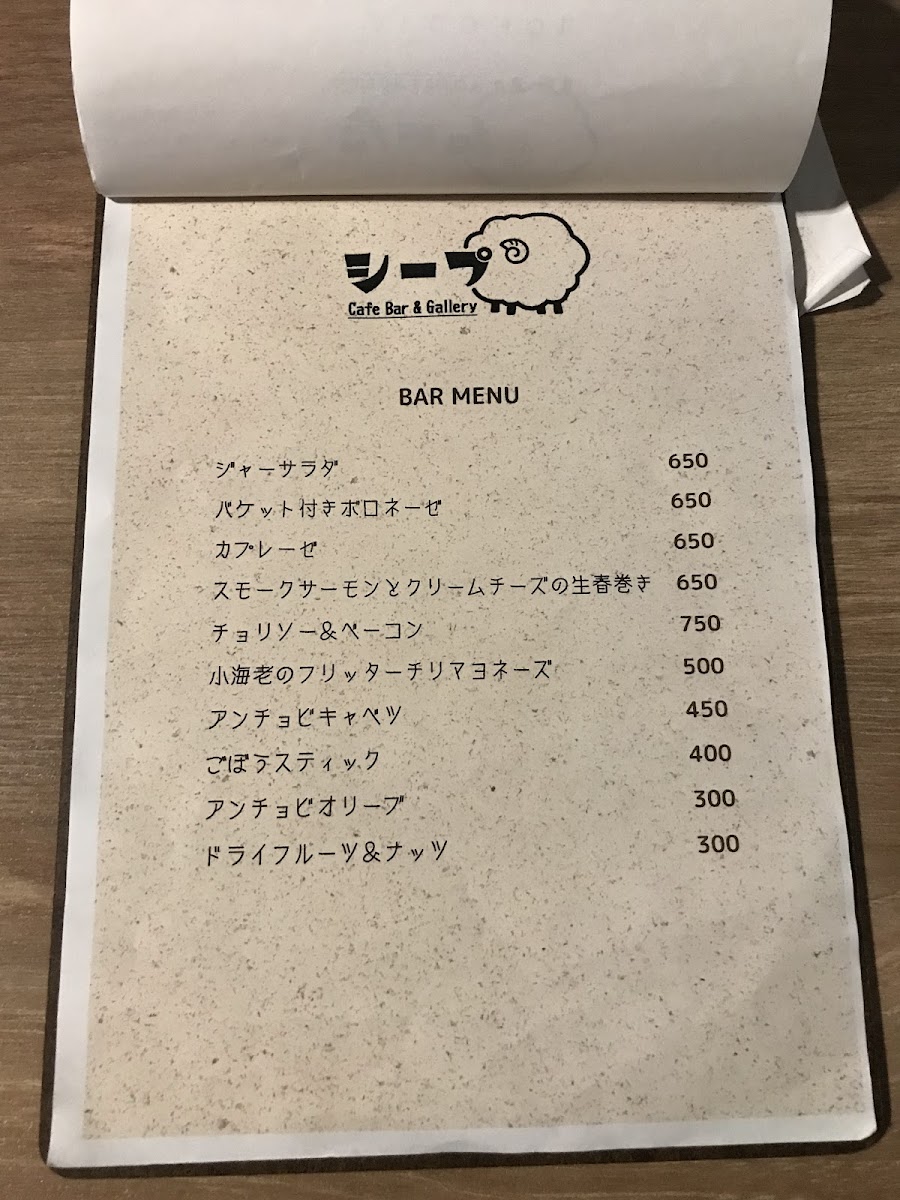 シープ
Cafe Bar & Gallery
BAR MENU
ジャーサラダ 650
バケット付きボロネーゼ 650
カプレーゼ 650
スモークサーモンとクリームチーズの生春巻き 650
チョリソー&ベーコン 750
小海老のフリッターチリマヨネーズ 500
アンチョビキャベツ 450
ごぼうスティック 400
アンチョビオリーブ 300
ドライフルーツ&ナッツ 300